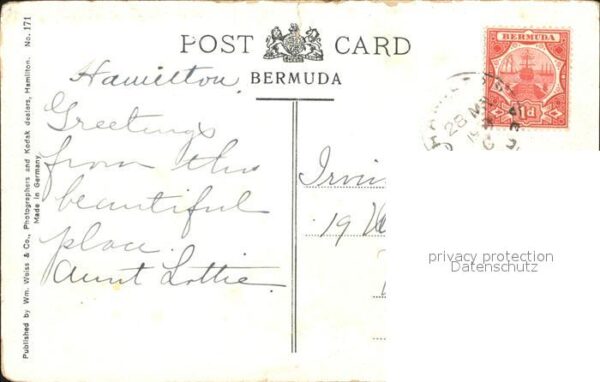 POST CARD
BERMUDA
No. 171
Published by Wm. Weiss & Co., Photographers and Kodak dealers, Hamilton.
Made in Germany
Hamilton.
Greetings
from this
beautiful
place.
Aunt Lottie.
BERMUDA
1d
28
19
privacy protection
Datenschutz